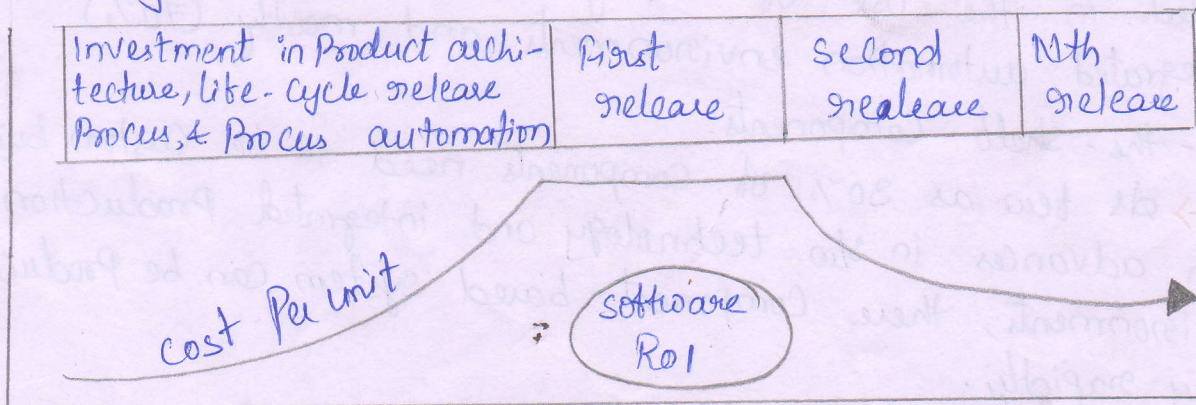 Investment in Product archi-
tecture, life-cycle release
Process, & Process automation
First
release
second
realease
Nth
release
cost Per unit
software
ROI